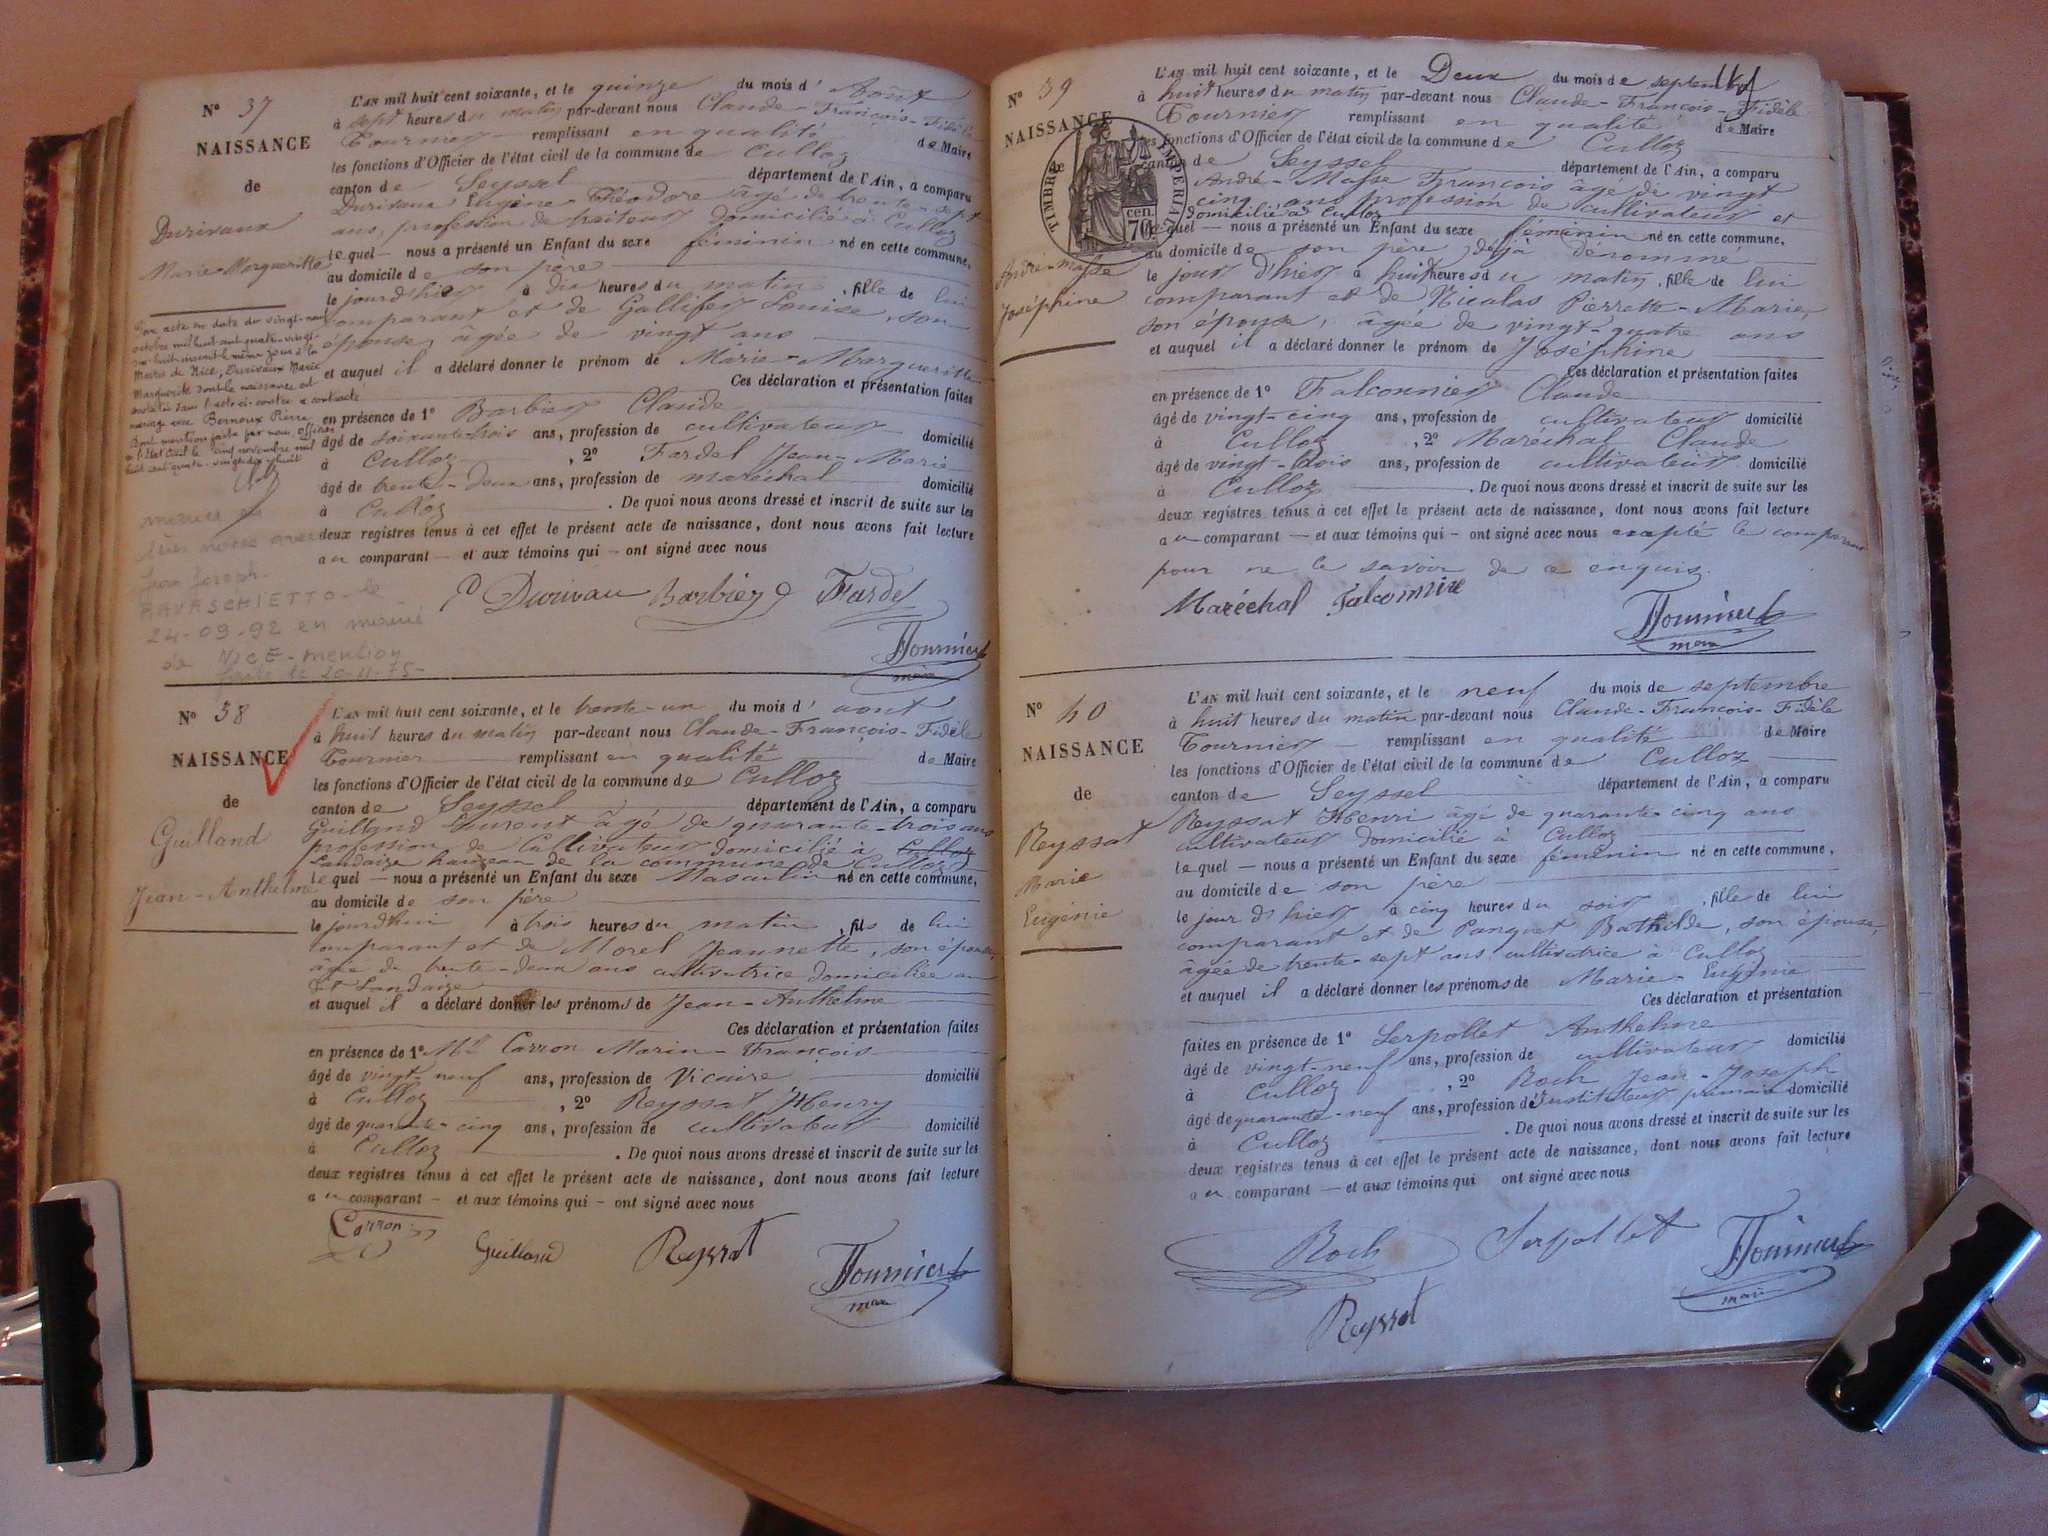 N° 37
NAISSANCE
de
Durivaux
Marie-Marguerite
L'AN mil huit cent soixante, et le quinze du mois d' Août
à sept heures du matin par-devant nous Claude-François-Fidèle
Tournier remplissant en qualité de Maire
les fonctions d'Officier de l'état civil de la commune de Culloz
canton de Seyssel département de l'Ain, a comparu
Durivaux Eugène-Théodore âgé de trente-sept
ans, profession de traiteur domicilié à Culloz
lequel — nous a présenté un Enfant du sexe féminin né en cette commune,
au domicile de son père
le jour d'hier à dix heures du matin, fille de lui
comparant et de Gallifer Louise, son
épouse, âgée de vingt ans
et auquel il a déclaré donner le prénom de Marie-Marguerite
Ces déclaration et présentation faites
en présence de 1° Barbier Claude
âgé de soixante-trois ans, profession de cultivateur domicilié
à Culloz, 2° Fardel Jean-Marie
âgé de trente-deux ans, profession de maréchal domicilié
à Culloz. De quoi nous avons dressé et inscrit de suite sur les
deux registres tenus à cet effet le présent acte de naissance, dont nous avons fait lecture
au comparant — et aux témoins qui — ont signé avec nous
Durivau Barbier Fardel
Tournier
maire
Par acte en date du vingt-neuf
octobre mil huit cent quatre-vingt-
dix-huit inscrit le même jour à la
Mairie de Nice, Durivaux Marie
Marguerite dont la naissance est
constatée dans l'acte ci-contre a contracté
mariage avec Bernoux Pierre
Dont mention faite par nous, Officier
de l'Etat Civil le cinq novembre mil
huit cent quatre-vingt-dix-huit
avec
Joseph
RAVASCHIETTO - le
24-09-92 en mairie
de NICE - mention
faite le 20-11-75-
N° 38
NAISSANCE
de
Guilland
Jean-Anthelme
L'AN mil huit cent soixante, et le trente-un du mois d' août
à huit heures du matin par-devant nous Claude-François-Fidèle
Tournier remplissant en qualité de Maire
les fonctions d'Officier de l'état civil de la commune de Culloz
canton de Seyssel département de l'Ain, a comparu
Guilland Laurent âgé de quarante-trois ans
profession de Cultivateur domicilié à Culloz
Landaize hameau de la commune de Culloz
lequel — nous a présenté un Enfant du sexe Masculin né en cette commune,
au domicile de son père
le jourd'hui à trois heures du matin, fils de lui
comparant et de Morel Jeannette, son épouse,
âgée de trente-deux ans cultivatrice domiciliée au
dt Landaize
et auquel il a déclaré donner les prénoms de Jean-Anthelme
Ces déclaration et présentation faites
en présence de 1° Mr Carron Marin-François
âgé de vingt-neuf ans, profession de Vicaire domicilié
à Culloz, 2° Reyssat Henry
âgé de quarante-cinq ans, profession de cultivateur domicilié
à Culloz. De quoi nous avons dressé et inscrit de suite sur les
deux registres tenus à cet effet le présent acte de naissance, dont nous avons fait lecture
au comparant — et aux témoins qui — ont signé avec nous
Carron Guilland Reyssat
Tournier
maire
N° 39
NAISSANCE
de
TIMBRE IMPÉRIAL
70 cen.
André-Masse
Joséphine
L'AN mil huit cent soixante, et le Deux du mois de septembre
à huit heures du matin par-devant nous Claude-François-Fidèle
Tournier remplissant en qualité de Maire
les fonctions d'Officier de l'état civil de la commune de Culloz
canton de Seyssel département de l'Ain, a comparu
André-Masse François âgé de vingt
cinq ans profession de cultivateur et
domicilié à Culloz
lequel — nous a présenté un Enfant du sexe féminin né en cette commune,
au domicile de son père déjà dénommé
le jour d'hier à huit heures du matin, fille de lui
comparant et de Nicolas Pierrette-Marie,
son épouse, âgée de vingt-quatre ans
et auquel il a déclaré donner le prénom de Joséphine
Ces déclaration et présentation faites
en présence de 1° Falconnier Claude
âgé de vingt-cinq ans, profession de cultivateur domicilié
à Culloz, 2° Maréchal Claude
âgé de vingt-trois ans, profession de cultivateur domicilié
à Culloz. De quoi nous avons dressé et inscrit de suite sur les
deux registres tenus à cet effet le présent acte de naissance, dont nous avons fait lecture
au comparant — et aux témoins qui — ont signé avec nous excepté le comparant
pour ne le savoir de ce enquis.
Maréchal Falconnier
Tournier
maire
N° 40
NAISSANCE
de
Reyssat
Marie
Eugénie
L'AN mil huit cent soixante, et le neuf du mois de septembre
à huit heures du matin par-devant nous Claude-François-Fidèle
Tournier remplissant en qualité de Maire
les fonctions d'Officier de l'état civil de la commune de Culloz
canton de Seyssel département de l'Ain, a comparu
Reyssat Henri âgé de quarante-cinq ans
cultivateur domicilié à Culloz
lequel — nous a présenté un Enfant du sexe féminin né en cette commune,
au domicile de son père
le jour d'hier à cinq heures du soir, fille de lui
comparant et de Panguet Bathilde, son épouse,
âgée de trente-sept ans cultivatrice à Culloz
et auquel il a déclaré donner les prénoms de Marie-Eugénie
Ces déclaration et présentation
faites en présence de 1° Serpollet Anthelme
âgé de vingt-neuf ans, profession de cultivateur domicilié
à Culloz, 2° Roch Jean-Joseph
âgé de quarante-neuf ans, profession d'Instituteur primaire domicilié
à Culloz. De quoi nous avons dressé et inscrit de suite sur les
deux registres tenus à cet effet le présent acte de naissance, dont nous avons fait lecture
au comparant — et aux témoins qui ont signé avec nous
Roch Serpollet Tournier
maire
Reyssat